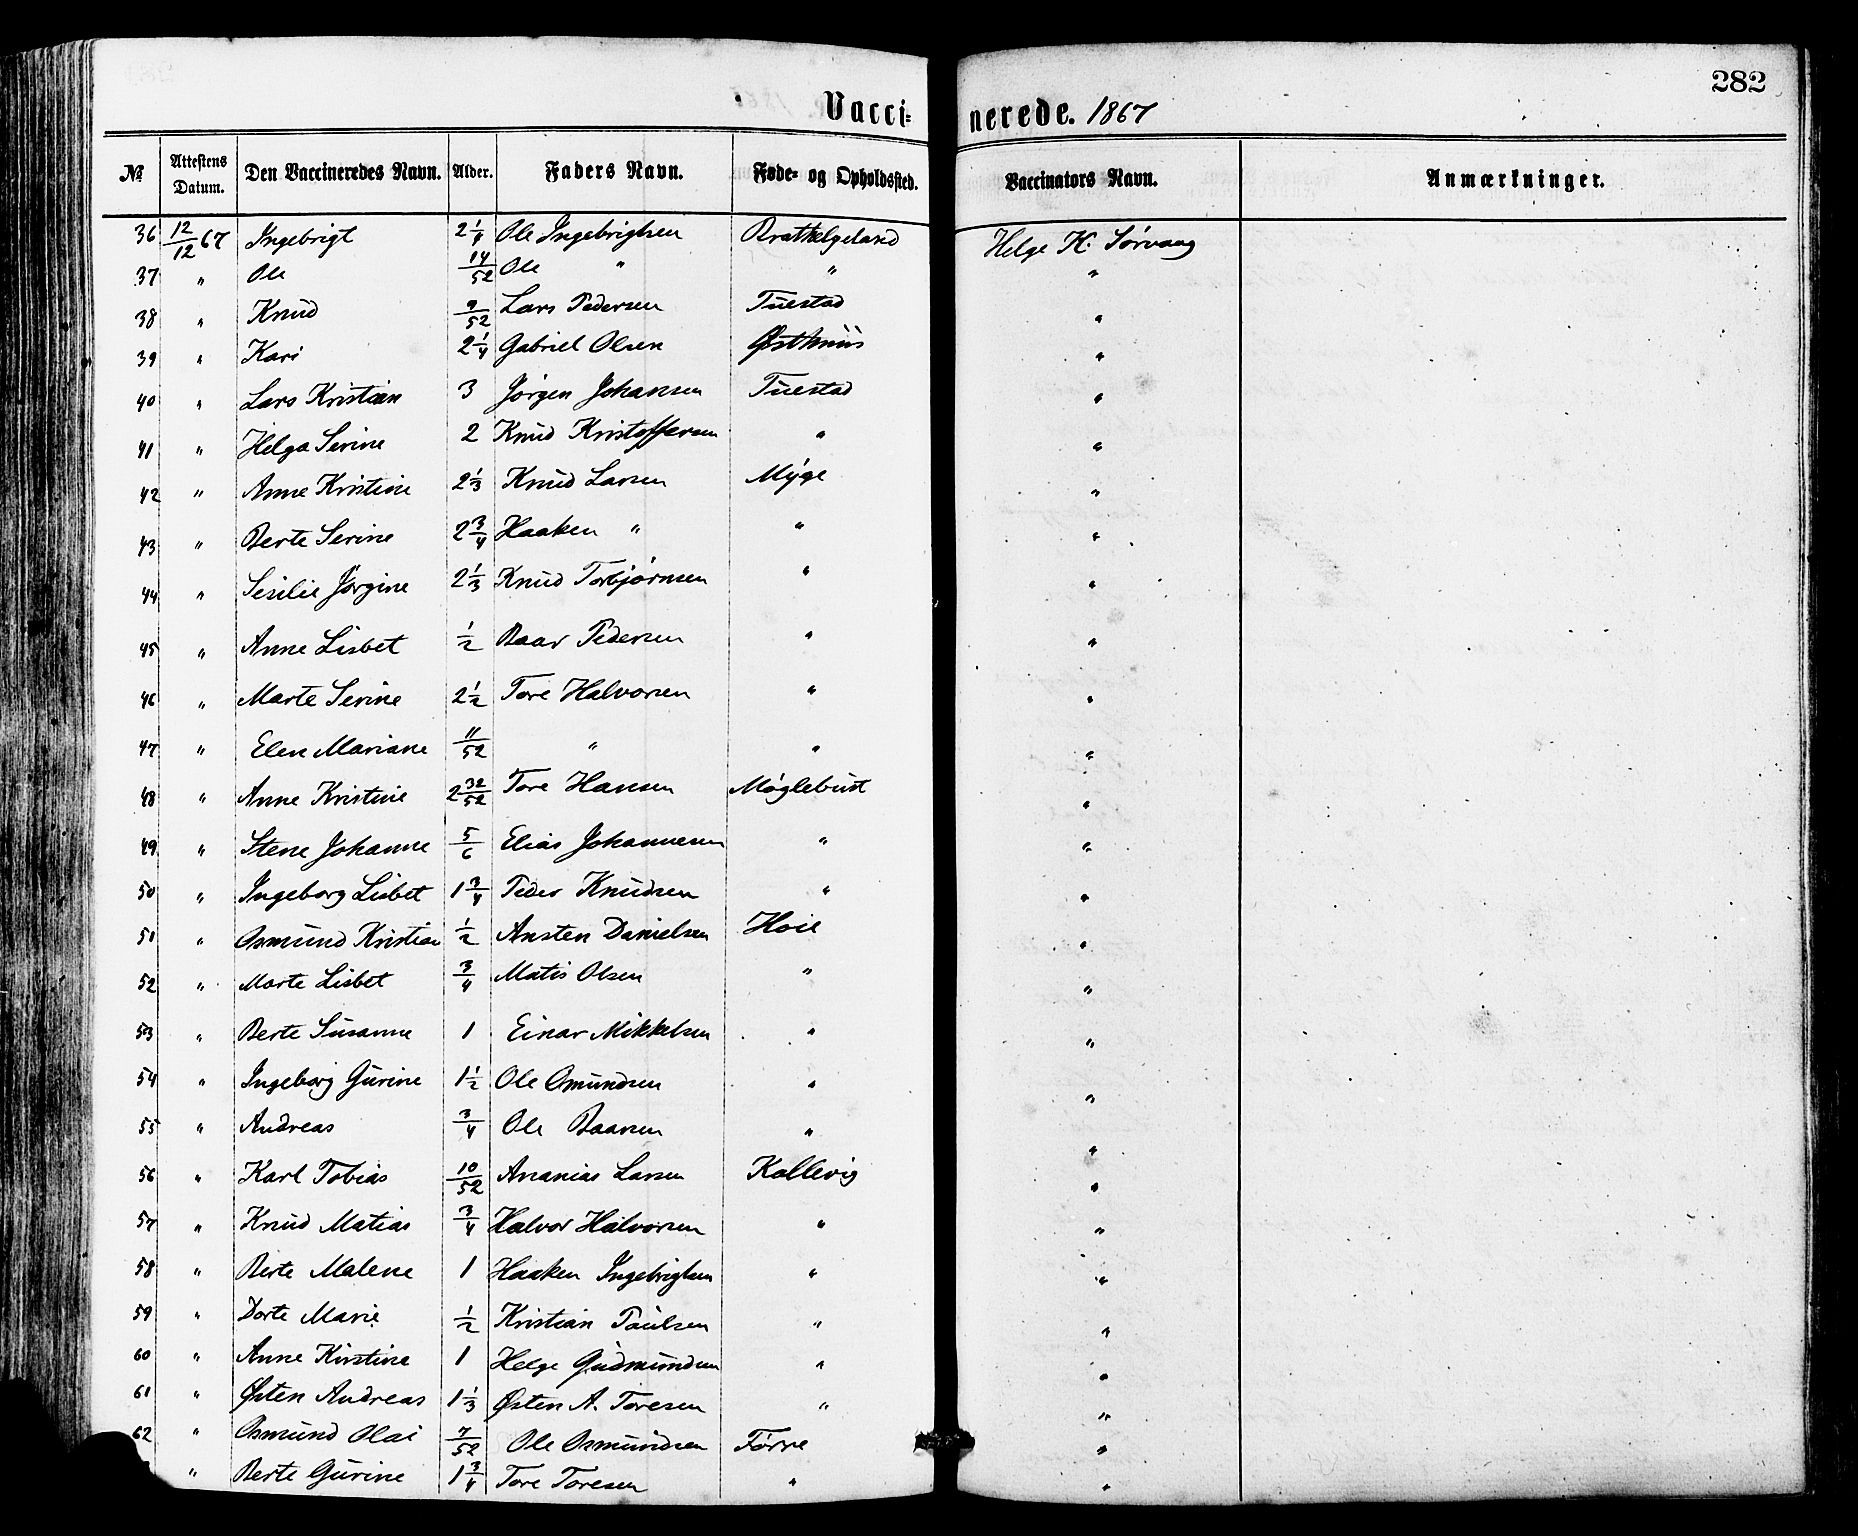 282
Vaccinerede. 1867
№ | Attestens Datum. | Den Vaccineredes Navn. | Alder. | Faders Navn. | Føde- og Opholdssted. | Vaccinators Navn. | Anmærkninger.
36 | 12/12 67 | Ingebrigt | 2 1/4 | Ole Ingebrigtsen | Brattelgeland | Helge K. Sørvaag
37 | " | Ole | 14/52 | Ole " | " | "
38 | " | Knud | 9/52 | Lars Pedersen | Tuestad | "
39 | " | Kari | 2 1/4 | Gabriel Olsen | Østhuus | "
40 | " | Lars Kristian | 3 | Jørgen Johansen | Tuestad | "
41 | " | Helga Serine | 2 | Knud Kristoffersen | " | "
42 | " | Anne Kristine | 2 1/3 | Knud Larsen | Myge | "
43 | " | Berte Serine | 2 3/4 | Haaken " | " | "
44 | " | Sesilie Jørgine | 2 1/3 | Knud Torbjørnsen | " | "
45 | " | Anne Lisbet | 1/2 | Baar Pedersen | " | "
46 | " | Marte Serine | 2 1/2 | Tore Halvorsen | " | "
47 | " | Elen Mariane | 11/52 | " | " | "
48 | " | Anne Kristine | 2 32/52 | Tore Hansen | Møglebust | "
49 | " | Stene Johanne | 5/6 | Elias Johannesen | " | "
50 | " | Ingeborg Lisbet | 1 3/4 | Peder Knudsen | " | "
51 | " | Osmund Kristian | 1/2 | Ansten Danielsen | Høie | "
52 | " | Marte Lisbet | 3/4 | Matis Olsen | " | "
53 | " | Berte Susanne | 1 | Einar Mikkelsen | " | "
54 | " | Ingeborg Gurine | 1 1/2 | Ole Omundsen | " | "
55 | " | Andreas | 3/4 | Ole Baarsen | " | "
56 | " | Karl Tobias | 10/52 | Ananias Larsen | Kallevig | "
57 | " | Knud Matias | 3/4 | Halvor Halvorsen | " | "
58 | " | Berte Malene | 1 | Haaken Ingebrigtsen | " | "
59 | " | Dorte Marie | 1/2 | Kristian Paulsen | " | "
60 | " | Anne Kirstine | 1 | Helge Gudmundsen | " | "
61 | " | Østen Andreas | 1 1/3 | Østen A. Toresen | " | "
62 | " | Osmund Olai | 7/52 | Ole Osmundsen | Førre | "
" | Berte Gurine | 1 3/4 | Tore Toresen | " | "